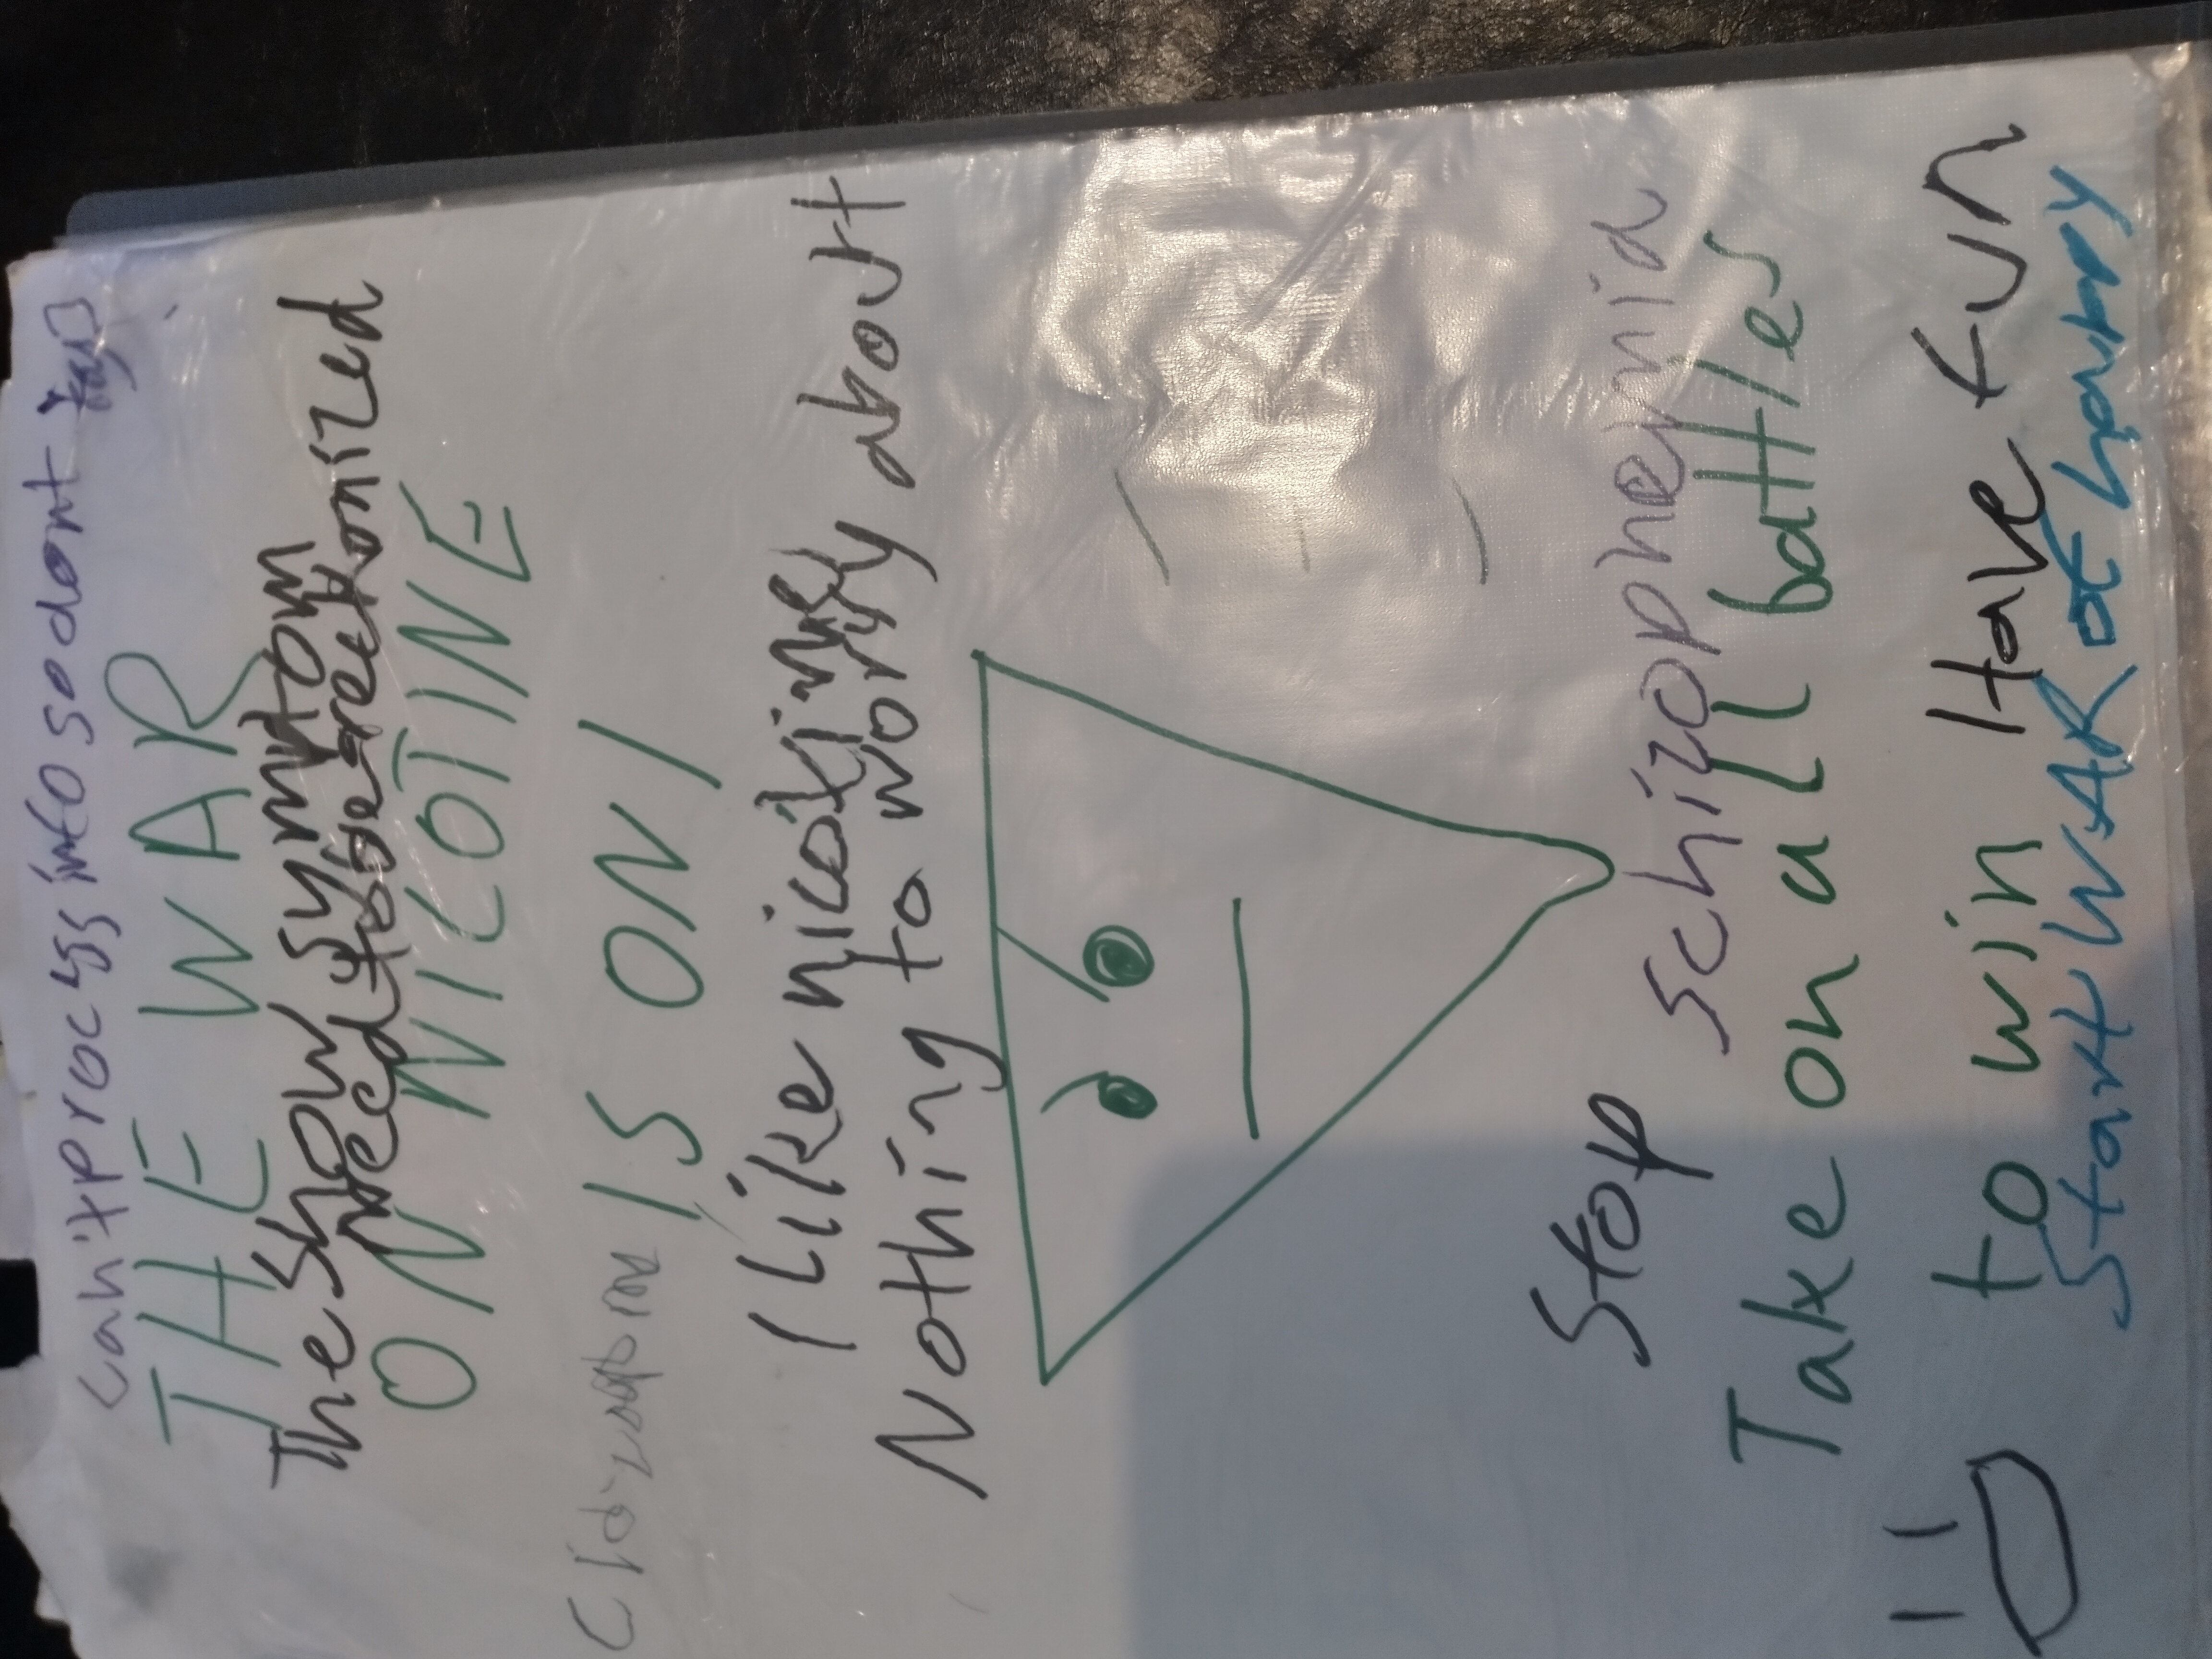 can't process info so dont
THE WAR
The show symptom
need to be
ON NICOTINE
IS ON!
I Like
Nothing to worry about
Stop schizophrenia
Take on all battles
to win Have fun
Start WAR of